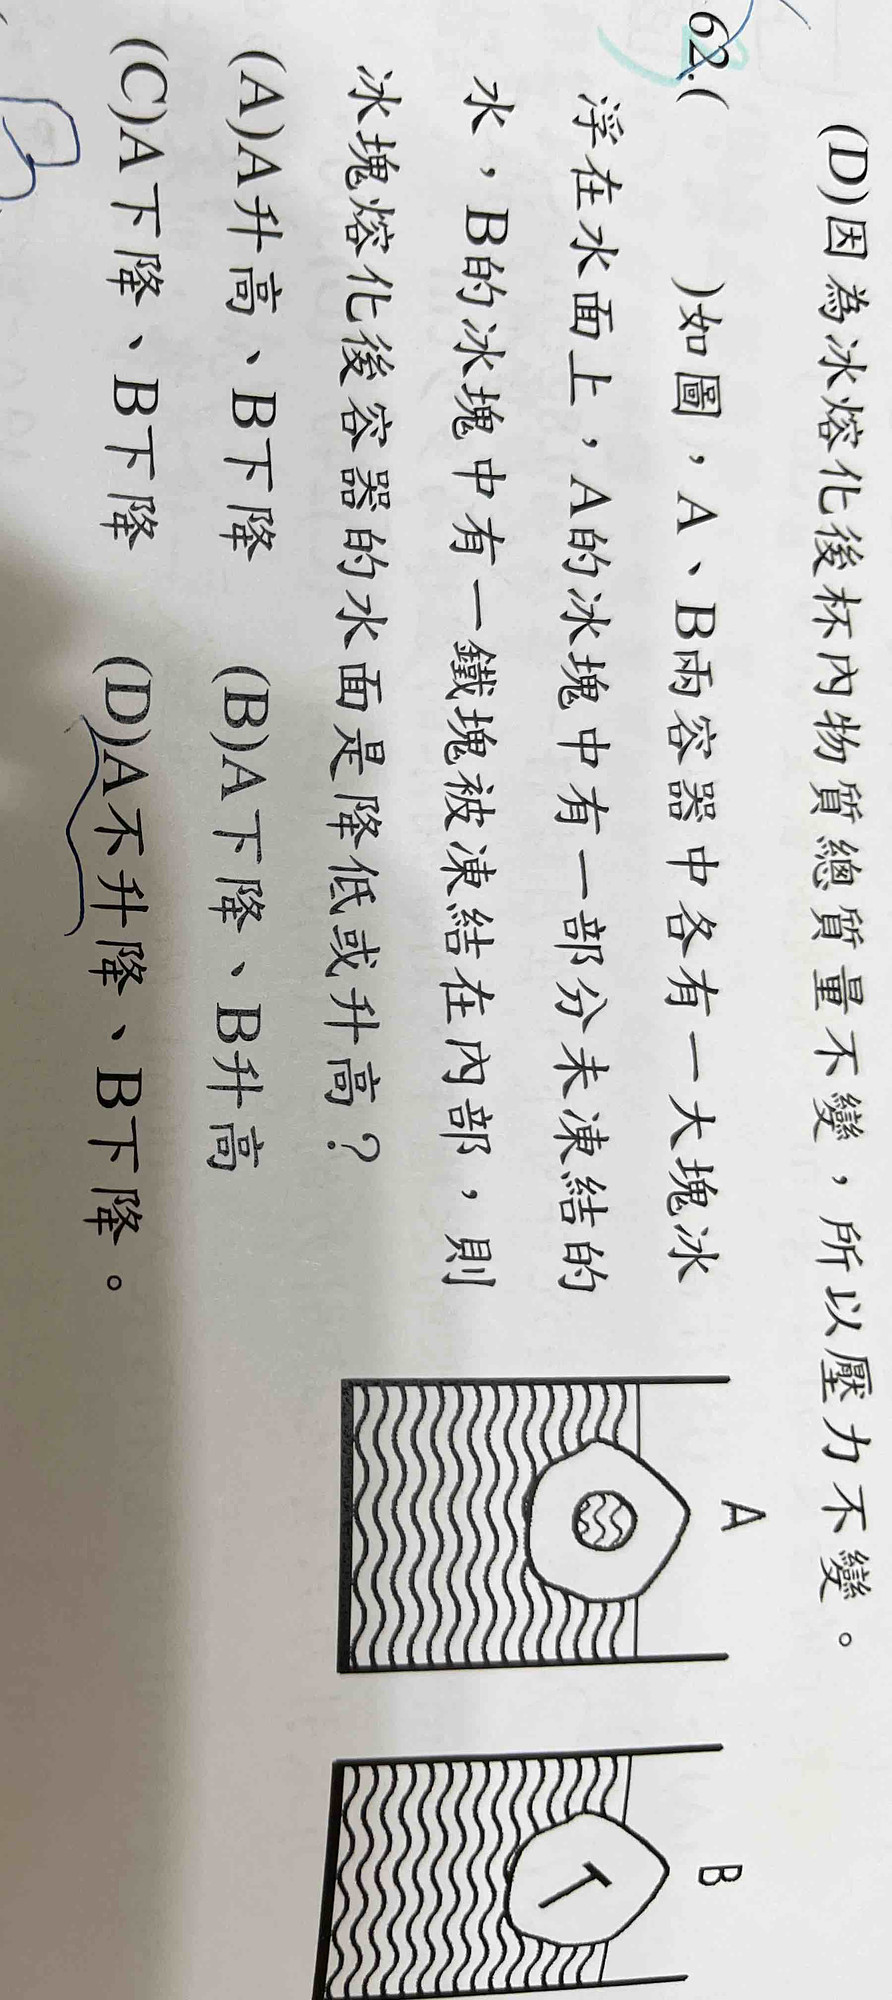 (D)因為冰熔化後杯內物質總質量不變，所以壓力不變。
62.(　　)如圖，A、B兩容器中各有一大塊冰
浮在水面上，A的冰塊中有一部分未凍結的
水，B的冰塊中有一鐵塊被凍結在內部，則
冰塊熔化後容器的水面是降低或升高？
(A)A升高、B下降　(B)A下降、B升高
(C)A下降、B下降　(D)A不升降、B下降。
A
B